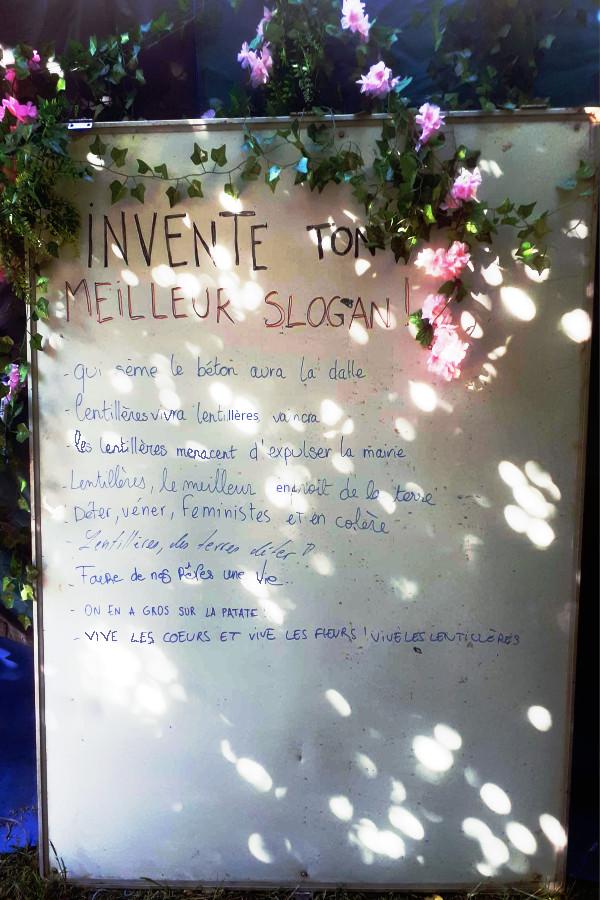 iNVENTE TON
MEILLEUR SLOGAN!
- qui sème le béton aura la dalle
- lentillères vivra lentillères vaincra
- les lentillères menacent d'expulser la mairie
- Lentillères, le meilleur endroit de la terre
- Déter, véner, féministes et en colère
- Lentillères, des terres déter
- Faire de nos rêves une vie..
- ON EN A GROS SUR LA PATATE
- VIVE LES COEURS ET VIVE LES FLEURS ! VIVE LES LENTILLÈRES